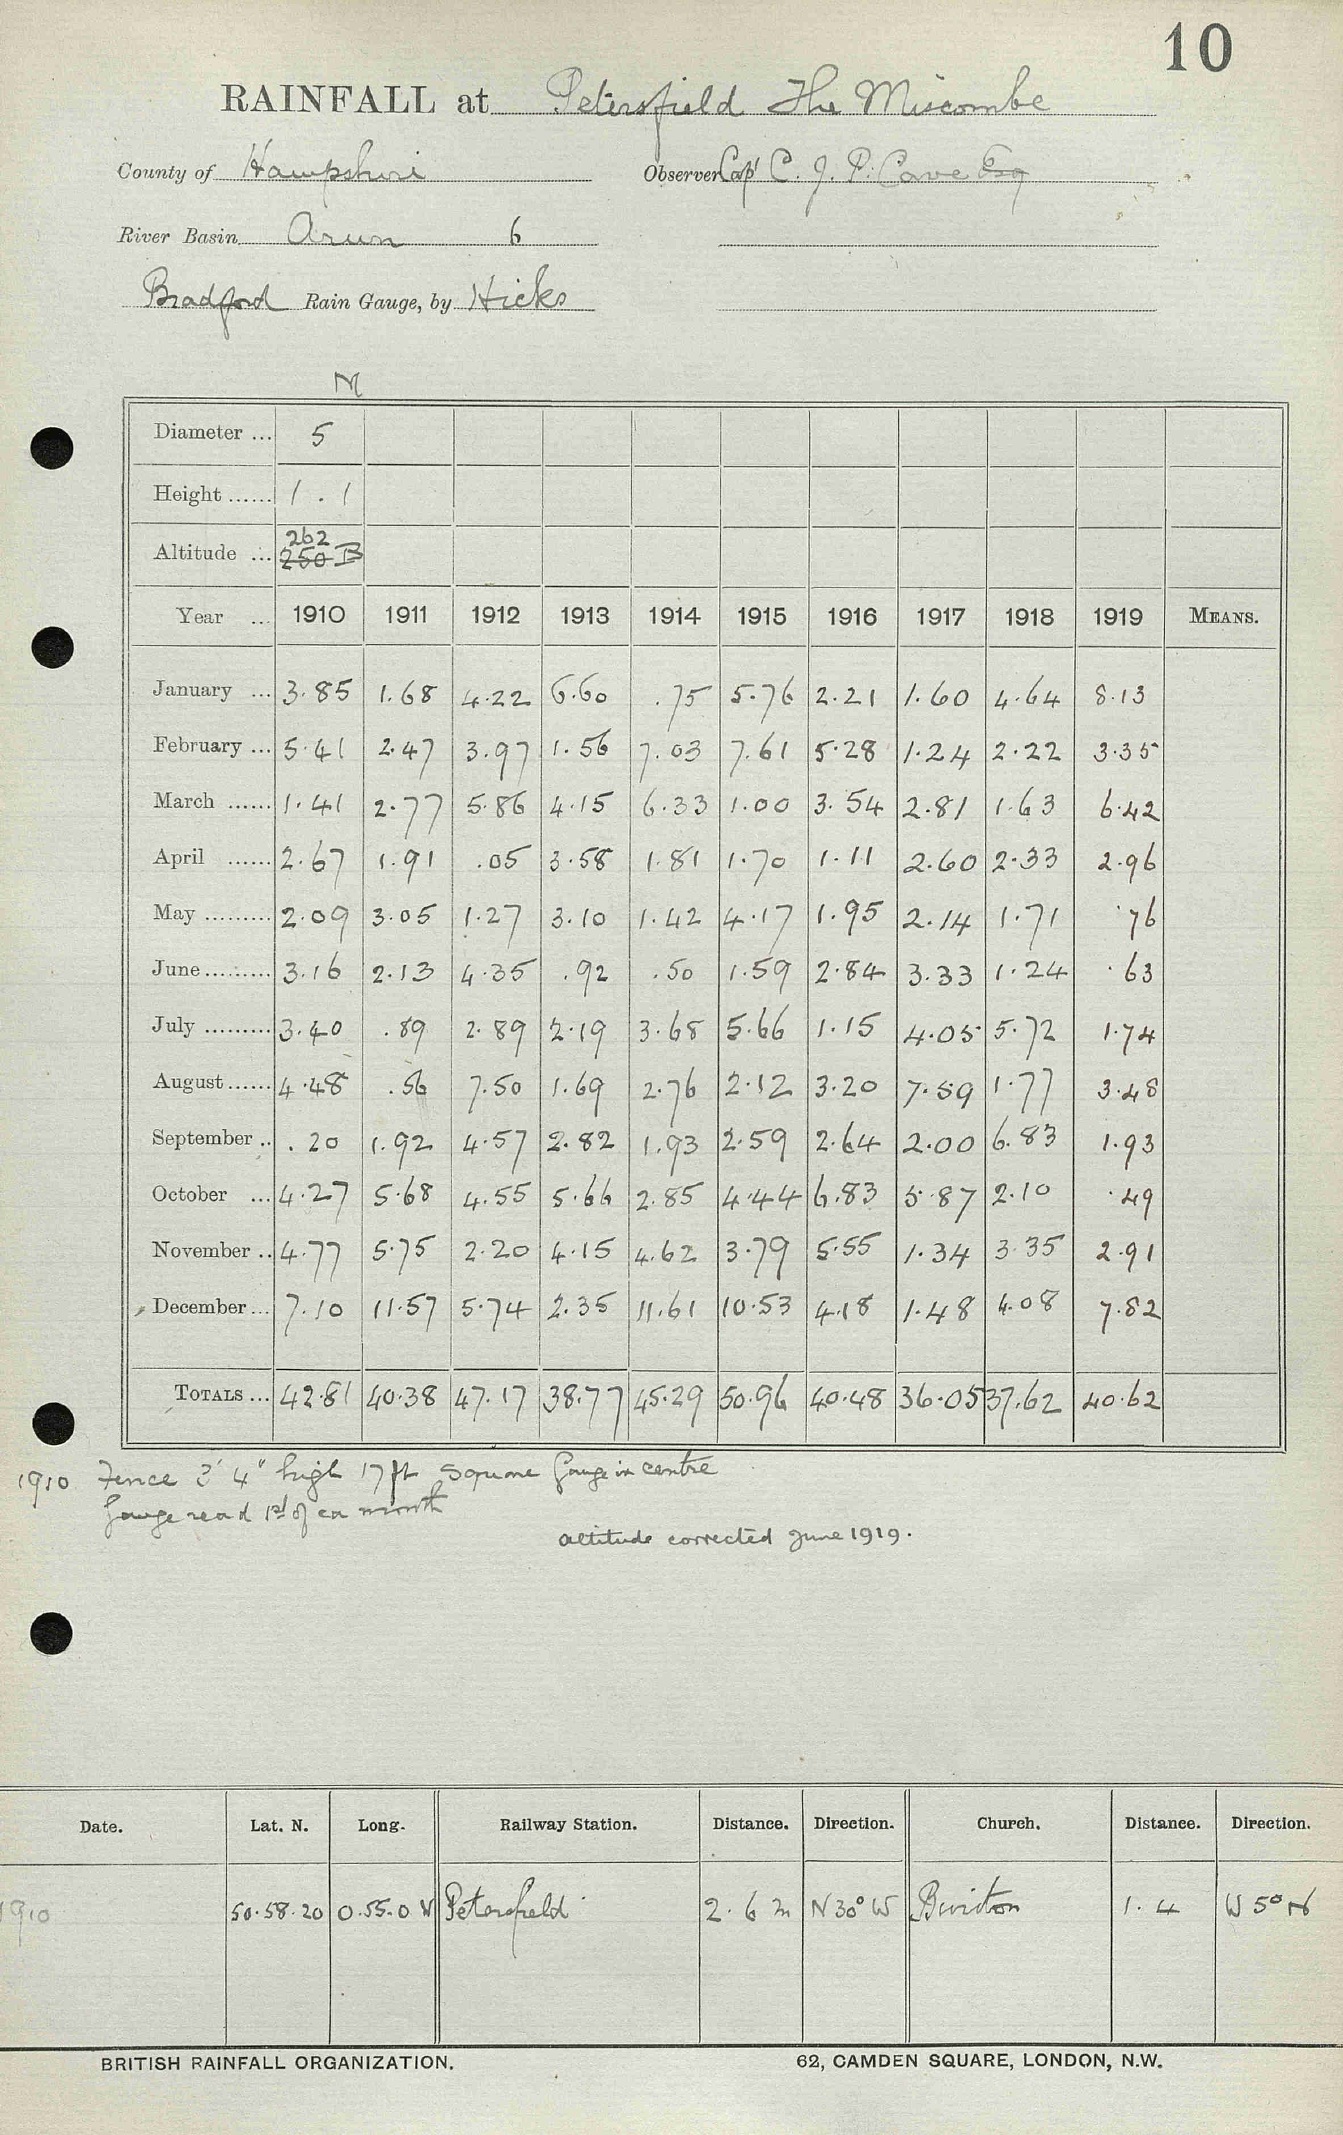 10
RAINFALL at Petersfield The Miscombe
County of Hampshire Observer Capt C. J. P. Cave Esq
River Basin Arun 6
Bradford Rain Gauge, by Hicks
M
Diameter ... 5
Height ...... 1 . 1
262
Altitude ... 250 B
Year ... 1910 1911 1912 1913 1914 1915 1916 1917 1918 1919 MEANS.
January ... 3.85 1.68 4.22 6.60 .75 5.76 2.21 1.60 4.64 8.13
February ... 5.41 2.47 3.97 1.56 7.03 7.61 5.28 1.24 2.22 3.35
March ...... 1.41 2.77 5.86 4.15 6.33 1.00 3.54 2.81 1.63 6.42
April ...... 2.67 1.91 .05 3.58 1.81 1.70 1.11 2.60 2.33 2.96
May ......... 2.09 3.05 1.27 3.10 1.42 4.17 1.95 2.14 1.71 .76
June ......... 3.16 2.13 4.35 .92 .50 1.59 2.84 3.33 1.24 .63
July ......... 3.40 .89 2.89 2.19 3.68 5.66 1.15 4.05 5.72 1.74
August ...... 4.48 .56 7.50 1.69 2.76 2.12 3.20 7.59 1.77 3.48
September .. .20 1.92 4.57 2.82 1.93 2.59 2.64 2.00 6.83 1.93
October ... 4.27 5.68 4.55 5.66 2.85 4.44 6.83 5.87 2.10 .49
November .. 4.77 5.75 2.20 4.15 4.62 3.79 5.55 1.34 3.35 2.91
December ... 7.10 11.57 5.74 2.35 11.61 10.53 4.18 1.48 4.08 7.82
TOTALS ... 42.81 40.38 47.17 38.77 45.29 50.96 40.48 36.05 37.62 40.62
1910 Fence 3' 4" high 17 ft square Gauge in centre
Gauge read 1st of ea month
altitude corrected June 1919.
Date. Lat. N. Long. Railway Station. Distance. Direction. Church. Distance. Direction.
1910 50.58.20 0.55.0 W Petersfield 2.6 m N 30° W Buriton 1.4 W 5° N
BRITISH RAINFALL ORGANIZATION. 62, CAMDEN SQUARE, LONDON, N.W.